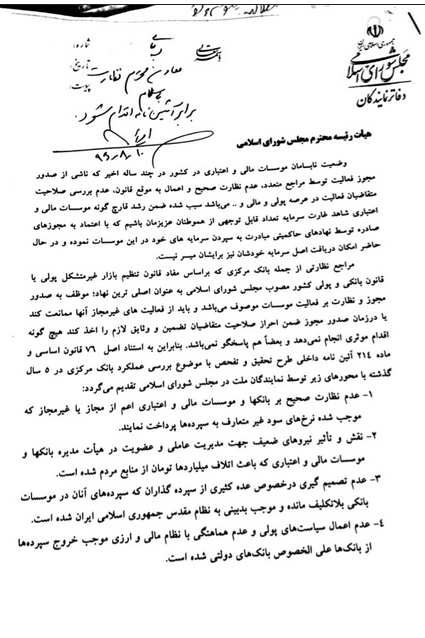 جمهوری اسلامی ایران
مجلس شورای اسلامی
دفاتر نمایندگان
شماره:
تاریخ:
پیوست:
معاون محترم نظارت
برابر آئین نامه اقدام شود.
۹۶/۸/۱۰
هیأت رئیسه محترم مجلس شورای اسلامی
وضعیت نابسامان موسسات مالی و اعتباری در کشور در چند ساله اخیر که ناشی از صدور
مجوز فعالیت توسط مراجع متعدد، عدم نظارت صحیح و اعمال به موقع قانون، عدم بررسی صلاحیت
متقاضیان فعالیت در عرصه پولی و مالی و ... می‌باشد سبب شده ضمن رشد قارچ گونه موسسات مالی و
اعتباری شاهد غارت سرمایه تعداد قابل توجهی از هموطنان عزیزمان باشیم که با اعتماد به مجوزهای
صادره توسط نهادهای حاکمیتی مبادرت به سپردن سرمایه های خود در این موسسات نموده و در حال
حاضر امکان دریافت اصل سرمایه خودشان نیز برایشان میسر نیست.
مراجع نظارتی از جمله بانک مرکزی که براساس مفاد قانون تنظیم بازار غیرمتشکل پولی یا
قانون بانکی و پولی کشور مصوب مجلس شورای اسلامی به عنوان اصلی ترین نهاد؛ موظف به صدور
مجوز و نظارت بر فعالیت موسسات موصوف می‌باشد و باید از فعالیت های غیرمجاز آنها ممانعت کند
یا درزمان صدور مجوز ضمن احراز صلاحیت متقاضیان تضمین و وثایق لازم را اخذ کند هیچ گونه
اقدام موثری انجام نمی‌دهد و بعضاً هم پاسخگو نمی‌باشد. بنابراین به استناد اصل ۷۶ قانون اساسی و
ماده ۲۱۴ آئین نامه داخلی طرح تحقیق و تفحص با موضوع بررسی عملکرد بانک مرکزی در ۵ سال
گذشته با محورهای زیر توسط نمایندگان ملت در مجلس شورای اسلامی تقدیم می‌گردد:
۱- عدم نظارت صحیح بر بانکها و موسسات مالی و اعتباری اعم از مجاز یا غیرمجاز که
موجب شده نرخ‌های سود غیر متعارف به سپرده‌ها پرداخت نمایند.
۲- نقش و تأثیر نیروهای ضعیف جهت مدیریت عاملی و عضویت در هیأت مدیره بانکها و
موسسات مالی و اعتباری که باعث اتلاف میلیاردها تومان از منابع مردم شده است.
۳- عدم تصمیم گیری درخصوص عده کثیری از سپرده گذاران که سپرده‌های آنان در موسسات
بانکی بلاتکلیف مانده و موجب بدبینی به نظام مقدس جمهوری اسلامی ایران شده است.
۴- عدم اعمال سیاست‌های پولی و عدم هماهنگی با نظام مالی و ارزی موجب خروج سپرده‌ها
از بانک‌ها علی الخصوص بانک‌های دولتی شده است.